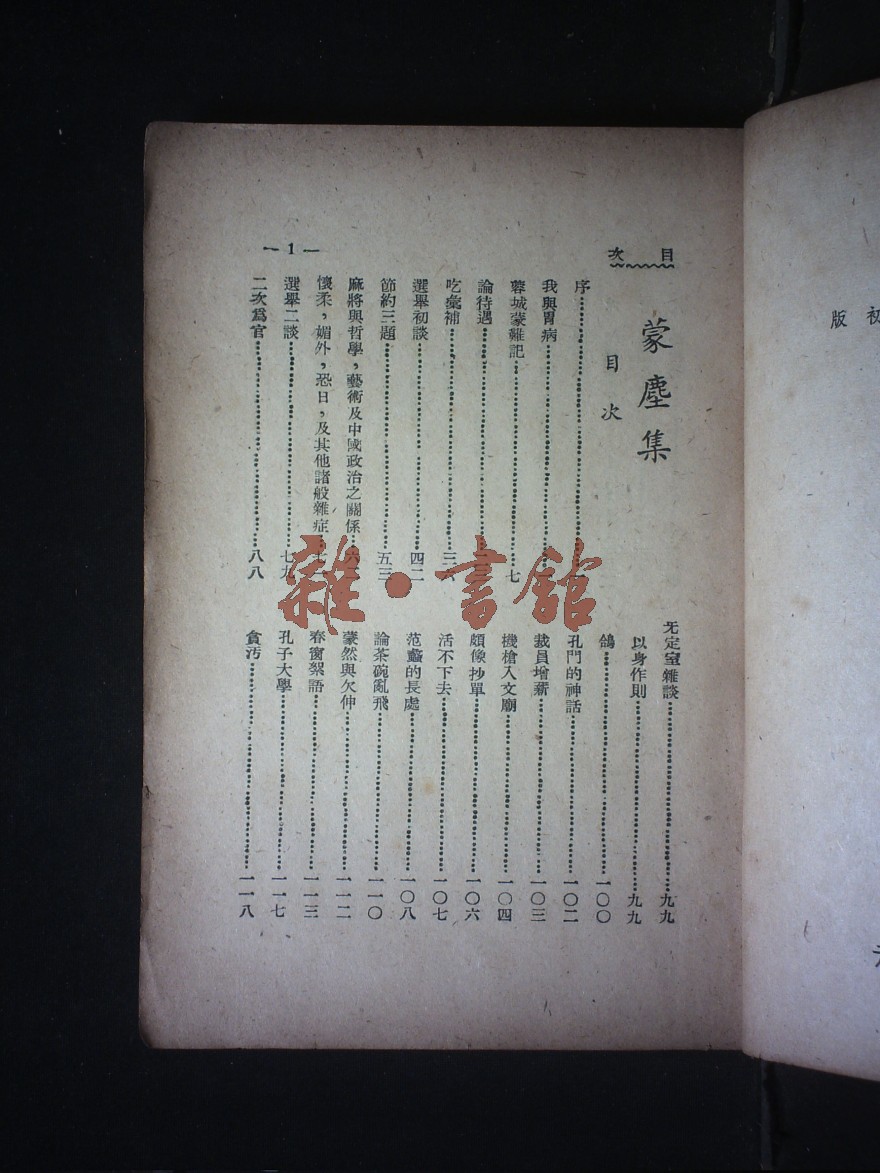 目次
蒙塵集
目次
序
我與胃病
蓉城蒙難記……七
論待遇
吃彙補……三
選舉初談……四二
節約三題……五三
麻將與哲學，藝術及中國政治之關係……六
懷柔，媚外，恐日，及其他諸般雜症……七
選舉二談……七九
二次爲官……八八
— 1 —
无定室雜談……九九
以身作則……九九
鴿……一〇〇
孔門的神話……一〇二
裁員增薪……一〇三
機槍入文廟……一〇四
頗像抄單……一〇六
活不下去……一〇七
范蠡的長處……一〇八
論茶碗亂飛……一一〇
蒙然與欠伸……一一二
春窗絮語……一一三
孔子大學……一一七
貪汚……一一八
初版
雜·書館